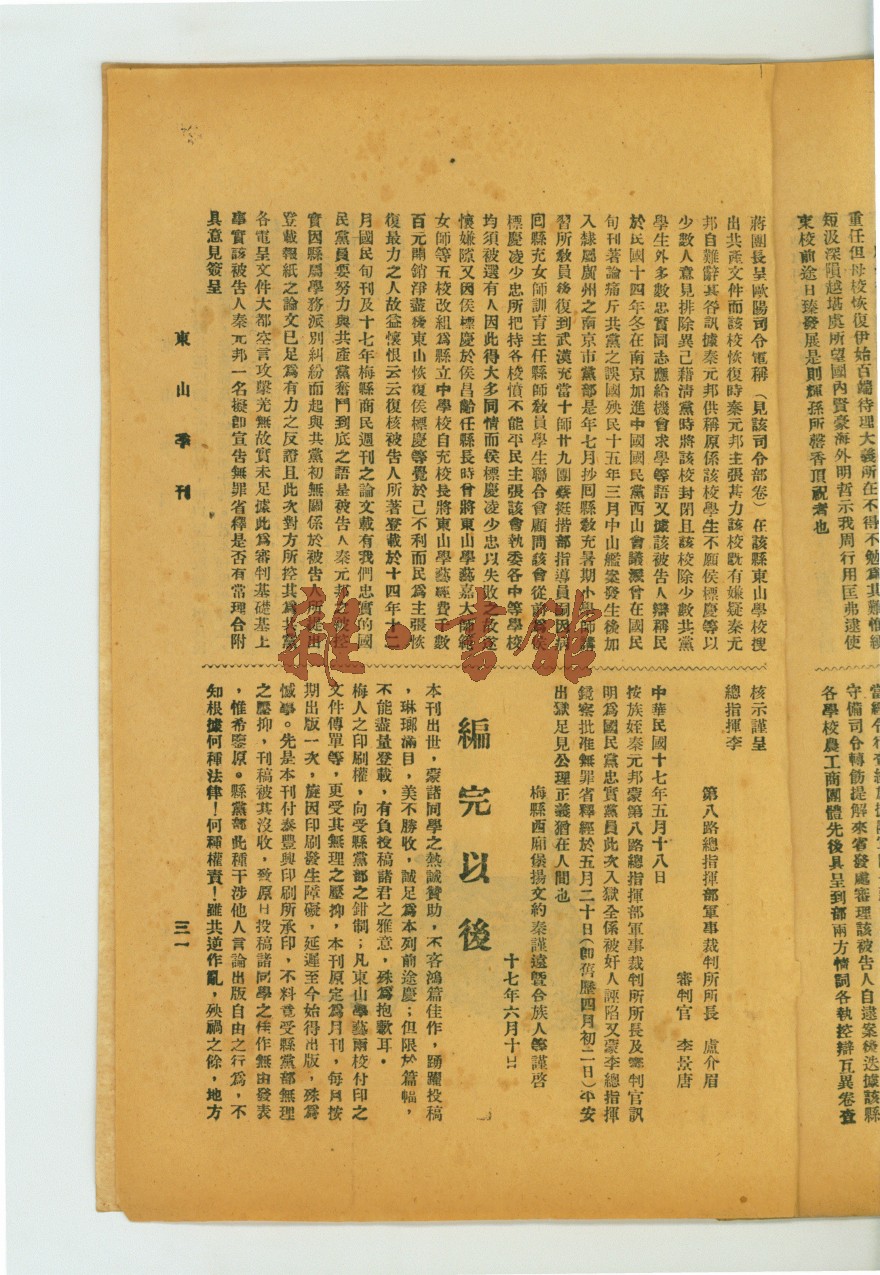 重任但母校恢復伊始百端待理大義所在不得不勉為其難惟綆
短汲深隕越堪虞所望國內賢豪海外明哲示我周行用匡弗逮使
東校前途日臻發展是則輝孫所馨香頂祝者也
當經令行查
守備司令轉飭提解來省發處審理該被告人自逮案後迭據該縣
各學校農工商團體先後具呈到部兩方情詞各執控辯互異卷查
蔣團長呈歐陽司令電稱（見該司令部卷）在該縣東山學校搜
出共產文件而該校恢復時秦元邦主張甚力該校既有嫌疑秦元
邦自難辭其咎訊據秦元邦供稱原係該校學生不願侯標慶等以
少數人意見排除異己藉清黨時將該校封閉且該校除少數共黨
學生外多數忠實同志應給機會求學等語又據該被告人辯稱民
於民國十四年冬在南京加進中國國民黨西山會議派曾在國民
旬刊著論痛斥共黨之誤國殃民十五年三月中山艦案發生後加
入隸屬廣州之南京市黨部是年七月抄回縣教充暑期小學師講
習所教員後復到武漢充當十師廿九團蔡挺揩部指導員嗣因病
回縣充女師訓育主任縣師教員學生聯合會顧問該會從前為侯
標慶凌少忠所把持各校憤不能平民主張該會執委各中等學校
均須被選有人因此得大多同情而侯標慶凌少忠以失敗之故遂
懷嫌隙又因侯標慶於侯昌齡任縣長時曾將東山學藝嘉大師範
女師等五校改組為縣立中學校自充校長將東山學藝經費千數
百元開銷淨盡後東山恢復侯標慶等覺於己不利而民為主張恢
復最力之人故益懷恨云云復核被告人所著登載於十四年十二
月國民旬刊及十七年梅縣商民週刊之論文載有我們忠實的國
民黨員要努力與共產黨奮鬥到底之語是被告人秦元邦之被控
實因縣屬學務派別糾紛而起與共黨初無關係於被告人所提出
登載報紙之論文已足為有力之反證且此次對方所控其為共黨
各電呈文件大都空言攻擊尤無故實未足據此為審判基礎基上
事實該被告人秦元邦一名擬卽宣告無罪省釋是否有當理合附
具意見簽呈
核示謹呈
總指揮李
第八路總指揮部軍事裁判所所長　盧介眉
審判官　李景唐
中華民國十七年五月十八日
按族姪秦元邦蒙第八路總指揮部軍事裁判所所長及審判官訊
明為國民黨忠實黨員此次入獄全係被奸人誣陷又蒙李總指揮
鏡察批准無罪省釋經於五月二十日（卽舊曆四月初二日）平安
出獄足見公理正義猶在人間也
梅縣西廂堡揚文約秦謹遠暨合族人等謹啓
十七年六月十日
編完以後
本刊出世，蒙諸同學之熱誠贊助，不吝鴻篇佳作，踴躍投稿
，琳瑯滿目，美不勝收，誠足為本列前途慶；但限於篇幅，
不能盡量登載，有負投稿諸君之雅意，殊為抱歉耳。
梅人之印刷權，向受縣黨部之鉗制；凡東山學藝兩校付印之
文件傳單等，更受其無理之壓抑，本刊原定為月刊，每月按
期出版一次，旋因印刷發生障礙，延遲至今始得出版，殊為
憾事。先是本刊付泰豐興印刷所承印，不料竟受縣黨部無理
之壓抑，刊稿被其沒收，致原日投稿諸同學之佳作無由發表
，惟希鑒原。縣黨部此種干涉他人言論出版自由之行為，不
知根據何種法律！何種權責！雖共逆作亂，殃禍之餘，地方
東山季刊
三一
雜·書館